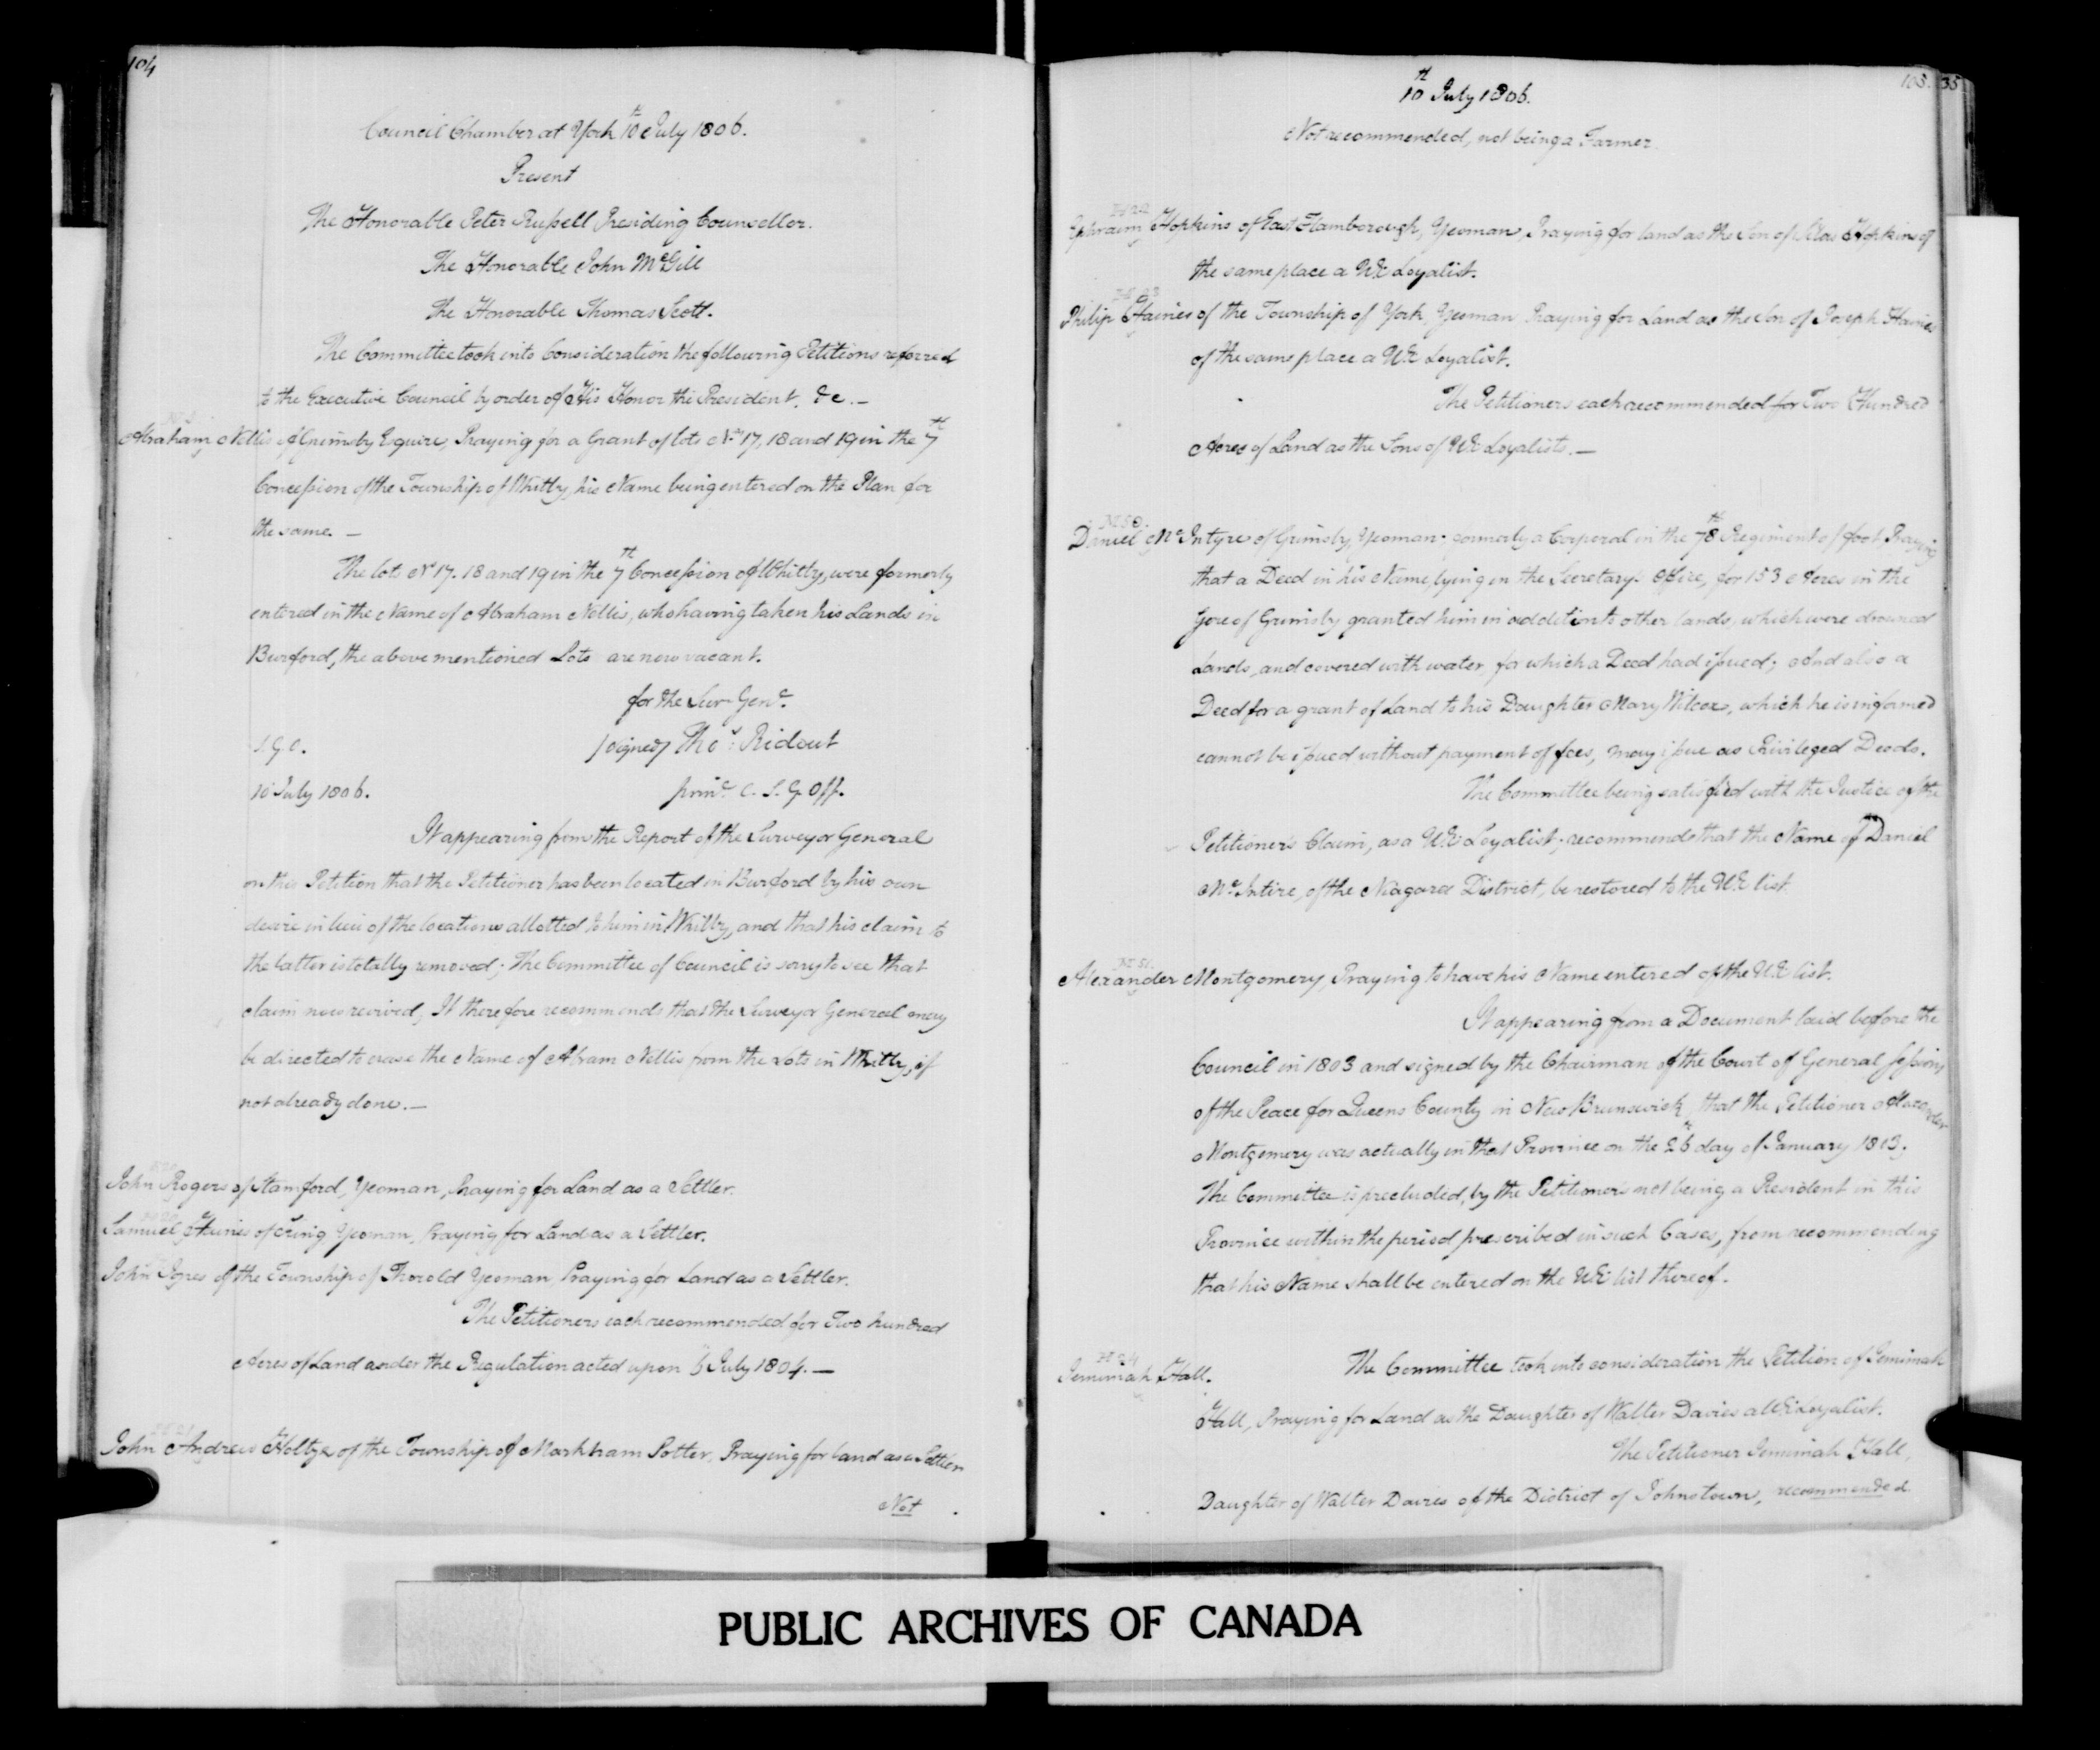 104
Council Chamber at York 10th July 1806.
Present
The Honorable Peter Russell Presiding Counsellor.
The Honorable John McGill
The Honorable Thomas Scott.
The Committee took into Consideration the following Petitions referred
to the Executive Council by order of His Honor the President, &c. —
Abraham Nellis of Grimsby Esquire, Praying for a Grant of lots Nos 17, 18 and 19 in the 7th
Concession of the Township of Whitby, his Name being entered on the Plan for
the same. —
The lots No 17. 18 and 19 in the 7th Concession of Whitby, were formerly
entered in the Name of Abraham Nellis, who having taken his Lands in
Burford, the above mentioned Lots are now vacant.
for the Surr Genl.
S.G.O. signed Thos: Ridout
10 July 1806. prinl. C. S. G. Off.
It appearing from the Report of the Surveyor General
on this Petition that the Petitioner has been located in Burford by his own
desire in lieu of the locations allotted to him in Whitby, and that his claim to
the latter is totally removed; The Committee of Council is sorry to see that
claim now revived, It therefore recommends that the Surveyor General may
be directed to erase the Name of Abram Nellis from the Lots in Whitby, if
not already done. —
John Rogers of Stamford, Yeoman, Praying for Land as a Settler.
Samuel of Yeoman, Praying for Land as a Settler.
John of the Township of Thorold Yeoman, Praying for Land as a Settler.
The Petitioners each recommended for Two hundred
Acres of Land under the Regulation acted upon 6 July 1804. —
H 21
John Andrew Holtze of the Township of Markham Potter, Praying for land as a Settler
Not
105. 35
10th July 1806.
Not recommended, not being a Farmer.
H 22
Ephraim Hopkins of East Flamborough, Yeoman, Praying for land as the Son of Silas Hopkins of
the same place a UE Loyalist.
H 23
Philip Haines of the Township of York, Yeoman Praying for Land as the Son of Joseph Haines
of the same place a UE Loyalist.
The Petitioners each recommended for Two Hundred
Acres of Land as the Sons of UE Loyalists. —
M 50.
Daniel McIntyre of Grimsby, Yeoman. formerly a Corporal in the 78th Regiment of foot, Praying
that a Deed in his Name, lying in the Secretary's Office, for 153 Acres in the
Gore of Grimsby granted him in addition to other lands, which were drowned
Lands, and covered with water, for which a Deed had issued; And also a
Deed for a grant of Land to his Daughter Mary Wilcox, which he is informed
cannot be issued without payment of fees, may issue as Privileged Deeds.
The Committee being satisfied with the Justice of the
Petitioner's Claim, as a UE Loyalist; recommends that the Name of Daniel
McIntire, of the Niagara District, be restored to the UE list.
M 51.
Alexander Montgomery, Praying to have his Name entered of the UE list.
It appearing from a Document laid before the
Council in 1803 and signed by the Chairman of the Court of General Sessions
of the Peace for Queens County in New Brunswick, that the Petitioner Alexander
Montgomery was actually in that Province on the 26th day of January 1803.
The Committee is precluded, by the Petitioner's not being a Resident in this
Province within the period prescribed in such Cases, from recommending
that his Name shall be entered on the UE list thereof.
H 24
Jemimah Hall. The Committee took into consideration the Petition of Jemimah
Hall, Praying for Land as the Daughter of Walter Davies a UE Loyalist.
The Petitioner Jemimah Hall,
Daughter of Walter Davies of the District of Johnstown, recommended
PUBLIC ARCHIVES OF CANADA